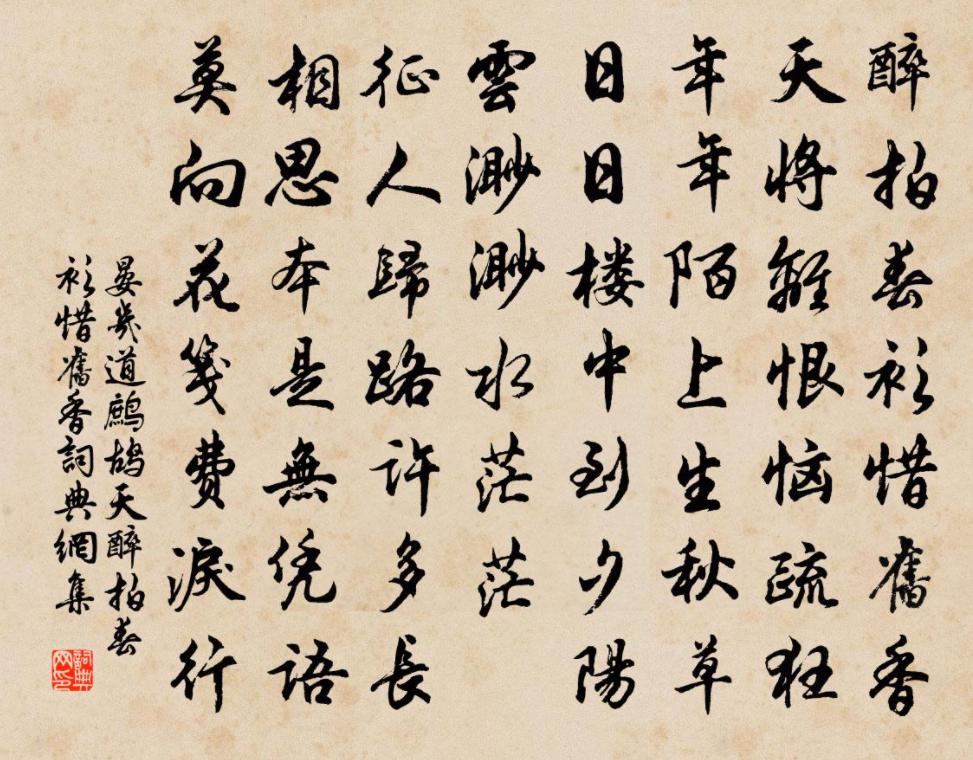 醉拍春衫惜舊香
天將離恨惱疏狂
年年陌上生秋草
日日楼中到夕陽
雲渺渺水茫茫
征人歸路許多長
相思本是無凭語
莫向花箋費淚行
晏幾道鷓鴣天醉拍春
衫惜舊香詞典網集
詞典网印